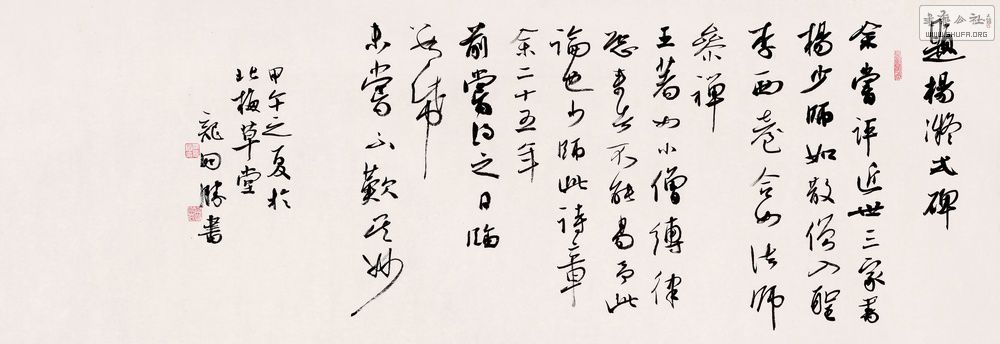 題楊凝式碑
余嘗評近世三家書
楊少師如散僧入聖
李西臺合如法師
參禪
王著如小僧縛律
恐來者不能易予此
論也少師此詩章
余二十五年
前嘗得之日臨
數紙
未嘗不歎其妙
甲午之夏於
北梅草堂
龍開勝書
WWW.SHUFA.ORG